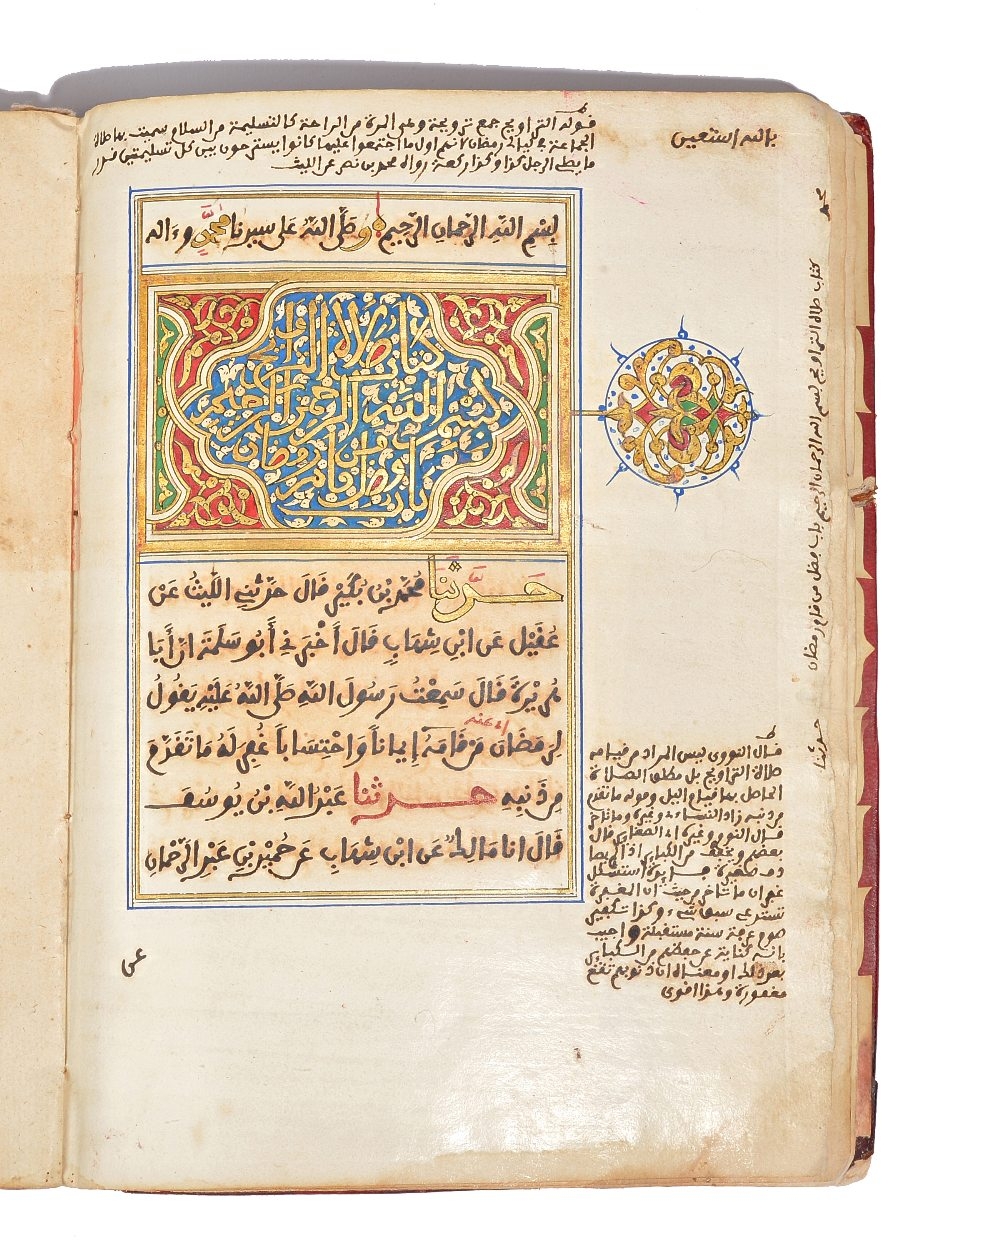 بالله استعين
قوله التراويح جمع ترويحة وهي المرة من الراحة كالتسليمة من السلام سميت بها صلاة
الجماعة في ليالي رمضان لأنهم أول ما اجتمعوا عليها كانوا يستريحون بين كل تسليمتين قدر
ما يصلي الرجل كذا وكذا ركعة رواه محمد بن نصر عن الليث
بسم الله الرحمان الرحيم وصلى الله على سيدنا محمد وءاله
كتاب صلاة التراويح
بسم الله الرحمن الرحيم
باب فضل من قام رمضان
حدثنا محمد بن بكير قال حدثني الليث عن
عقيل عن ابن شهاب قال أخبرني أبو سلمة أن أبا
هريرة قال سمعت رسول الله صلى الله عليه يقول
لرمضان من قامه إيمانا واحتسابا غفر له ما تقدم
من ذنبه حدثنا عبد الله بن يوسف
قال انا مالك عن ابن شهاب عن حميد بن عبد الرحمان
عن
كتاب صلاة التراويح بسم الله الرحمان الرحيم باب فضل من قام رمضان
حدثنا
قال النووي ليس المراد من قيامه
صلاة التراويح بل مطلق الصلاة
الحاصل بها قيام الليل وقوله ما تقدم
من ذنبه زاد النساءي وغيره وما تأخر
قال النووي وغيره أي الصغائر قال
بعضهم ويخفف من الكبائر إذا لم يصا
دف صغيرة استشكل
غفران ما تأخر من حيث أن المغفرة
تستدعي سبق شيء وكذا تكفير
صوم عرفة سنة مستقبلة وأجيب
بأنه كناية عن حفظهم من الكبائر
بعد ذلك أو معناه أن ذنوبهم تقع
مغفورة وهذا أقوى